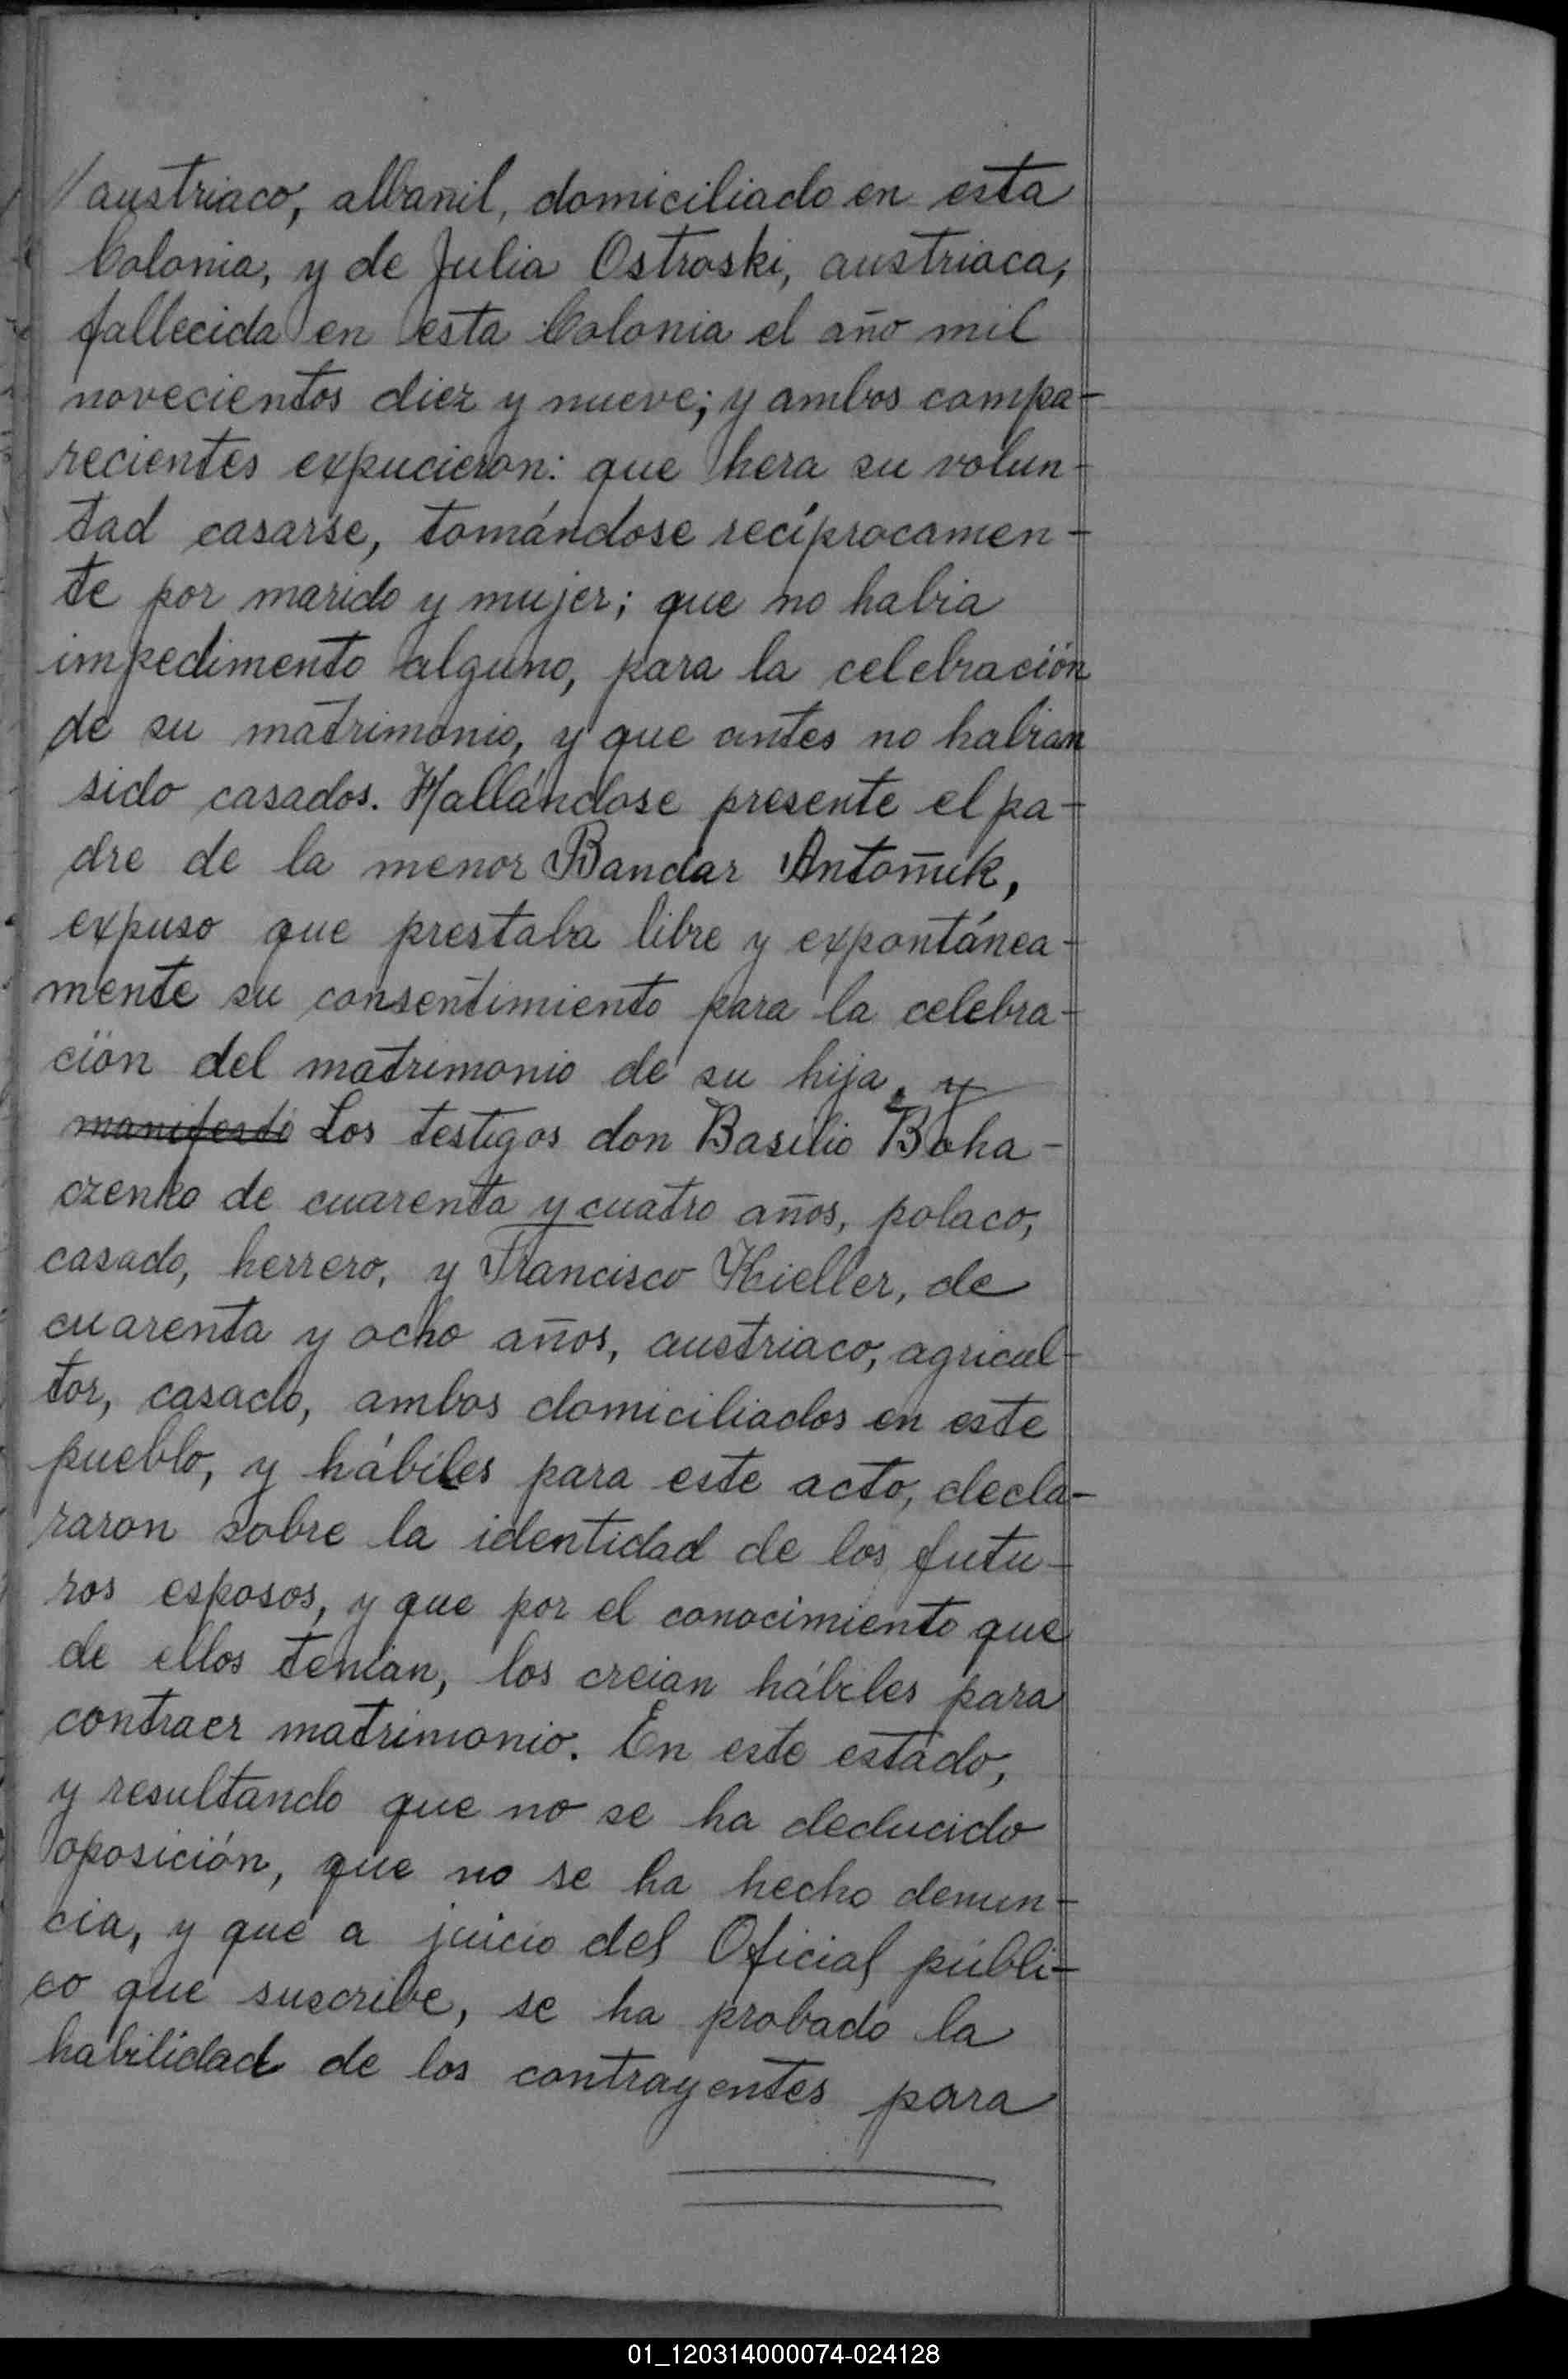 austriaco, albañil, domiciliado en esta
Colonia, y de Julia Ostroski, austriaca,
fallecida en esta Colonia el año mil
novecientos diez y nueve; y ambos compa-
recientes expucieron: que hera su volun-
tad casarse, tomándose recíprocamen-
te por marido y mujer; que no habia
impedimento alguno, para la celebración
de su matrimonio, y que antes no habian
sido casados. Hallándose presente el pa-
dre de la menor Bandar Antoñuk,
expuso que prestaba libre y expontánea-
mente su consentimiento para la celebra-
ción del matrimonio de su hija, y
manifestó Los testigos don Basilio Boha-
czenko de cuarenta y cuatro años, polaco,
casado, herrero, y Francisco Kieller, de
cuarenta y ocho años, austriaco, agricul-
tor, casado, ambos domiciliados en este
pueblo, y hábiles para este acto, decla-
raron sobre la identidad de los futu-
ros esposos, y que por el conocimiento que
de ellos tenían, los creian hábiles para
contraer matrimonio. En este estado,
y resultando que no se ha deducido
oposición, que no se ha hecho denun-
cia, y que a juicio del Oficial públi-
co que suscribe, se ha probado la
habilidad de los contrayentes para
01_120314000074-024128